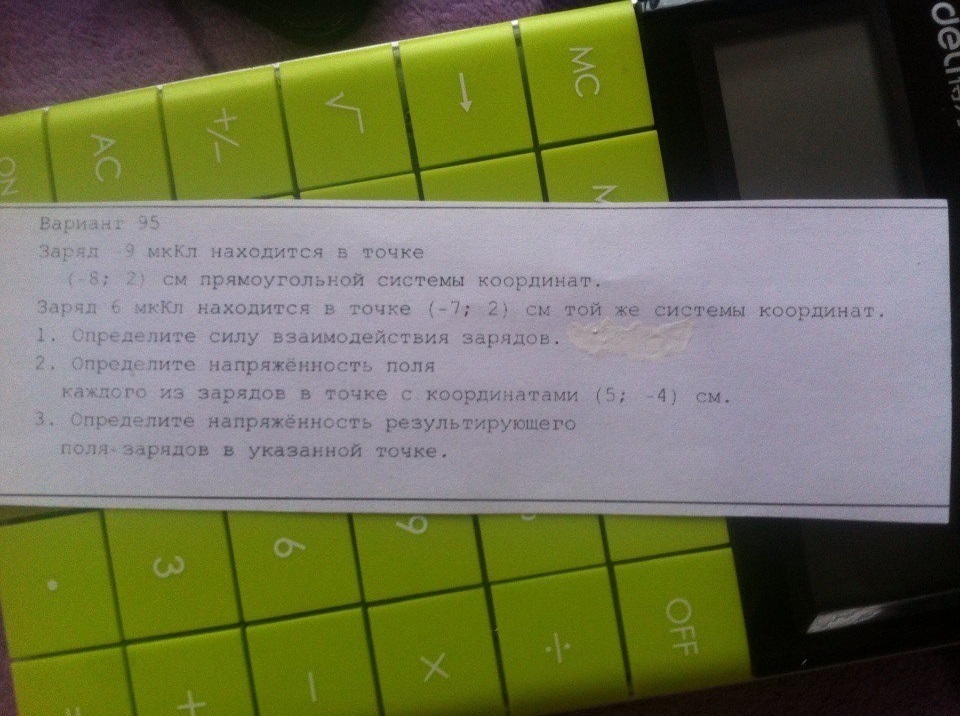 Вариант 95
Заряд -9 мкКл находится в точке
(-8; 2) см прямоугольной системы координат.
Заряд 6 мкКл находится в точке (-7; 2) см той же системы координат.
1. Определите силу взаимодействия зарядов.
2. Определите напряжённость поля
каждого из зарядов в точке с координатами (5; -4) см.
3. Определите напряжённость результирующего
поля зарядов в указанной точке.
MC
→
√
+/−
AC
ON
9
6
3
.
OFF
÷
×
−
+